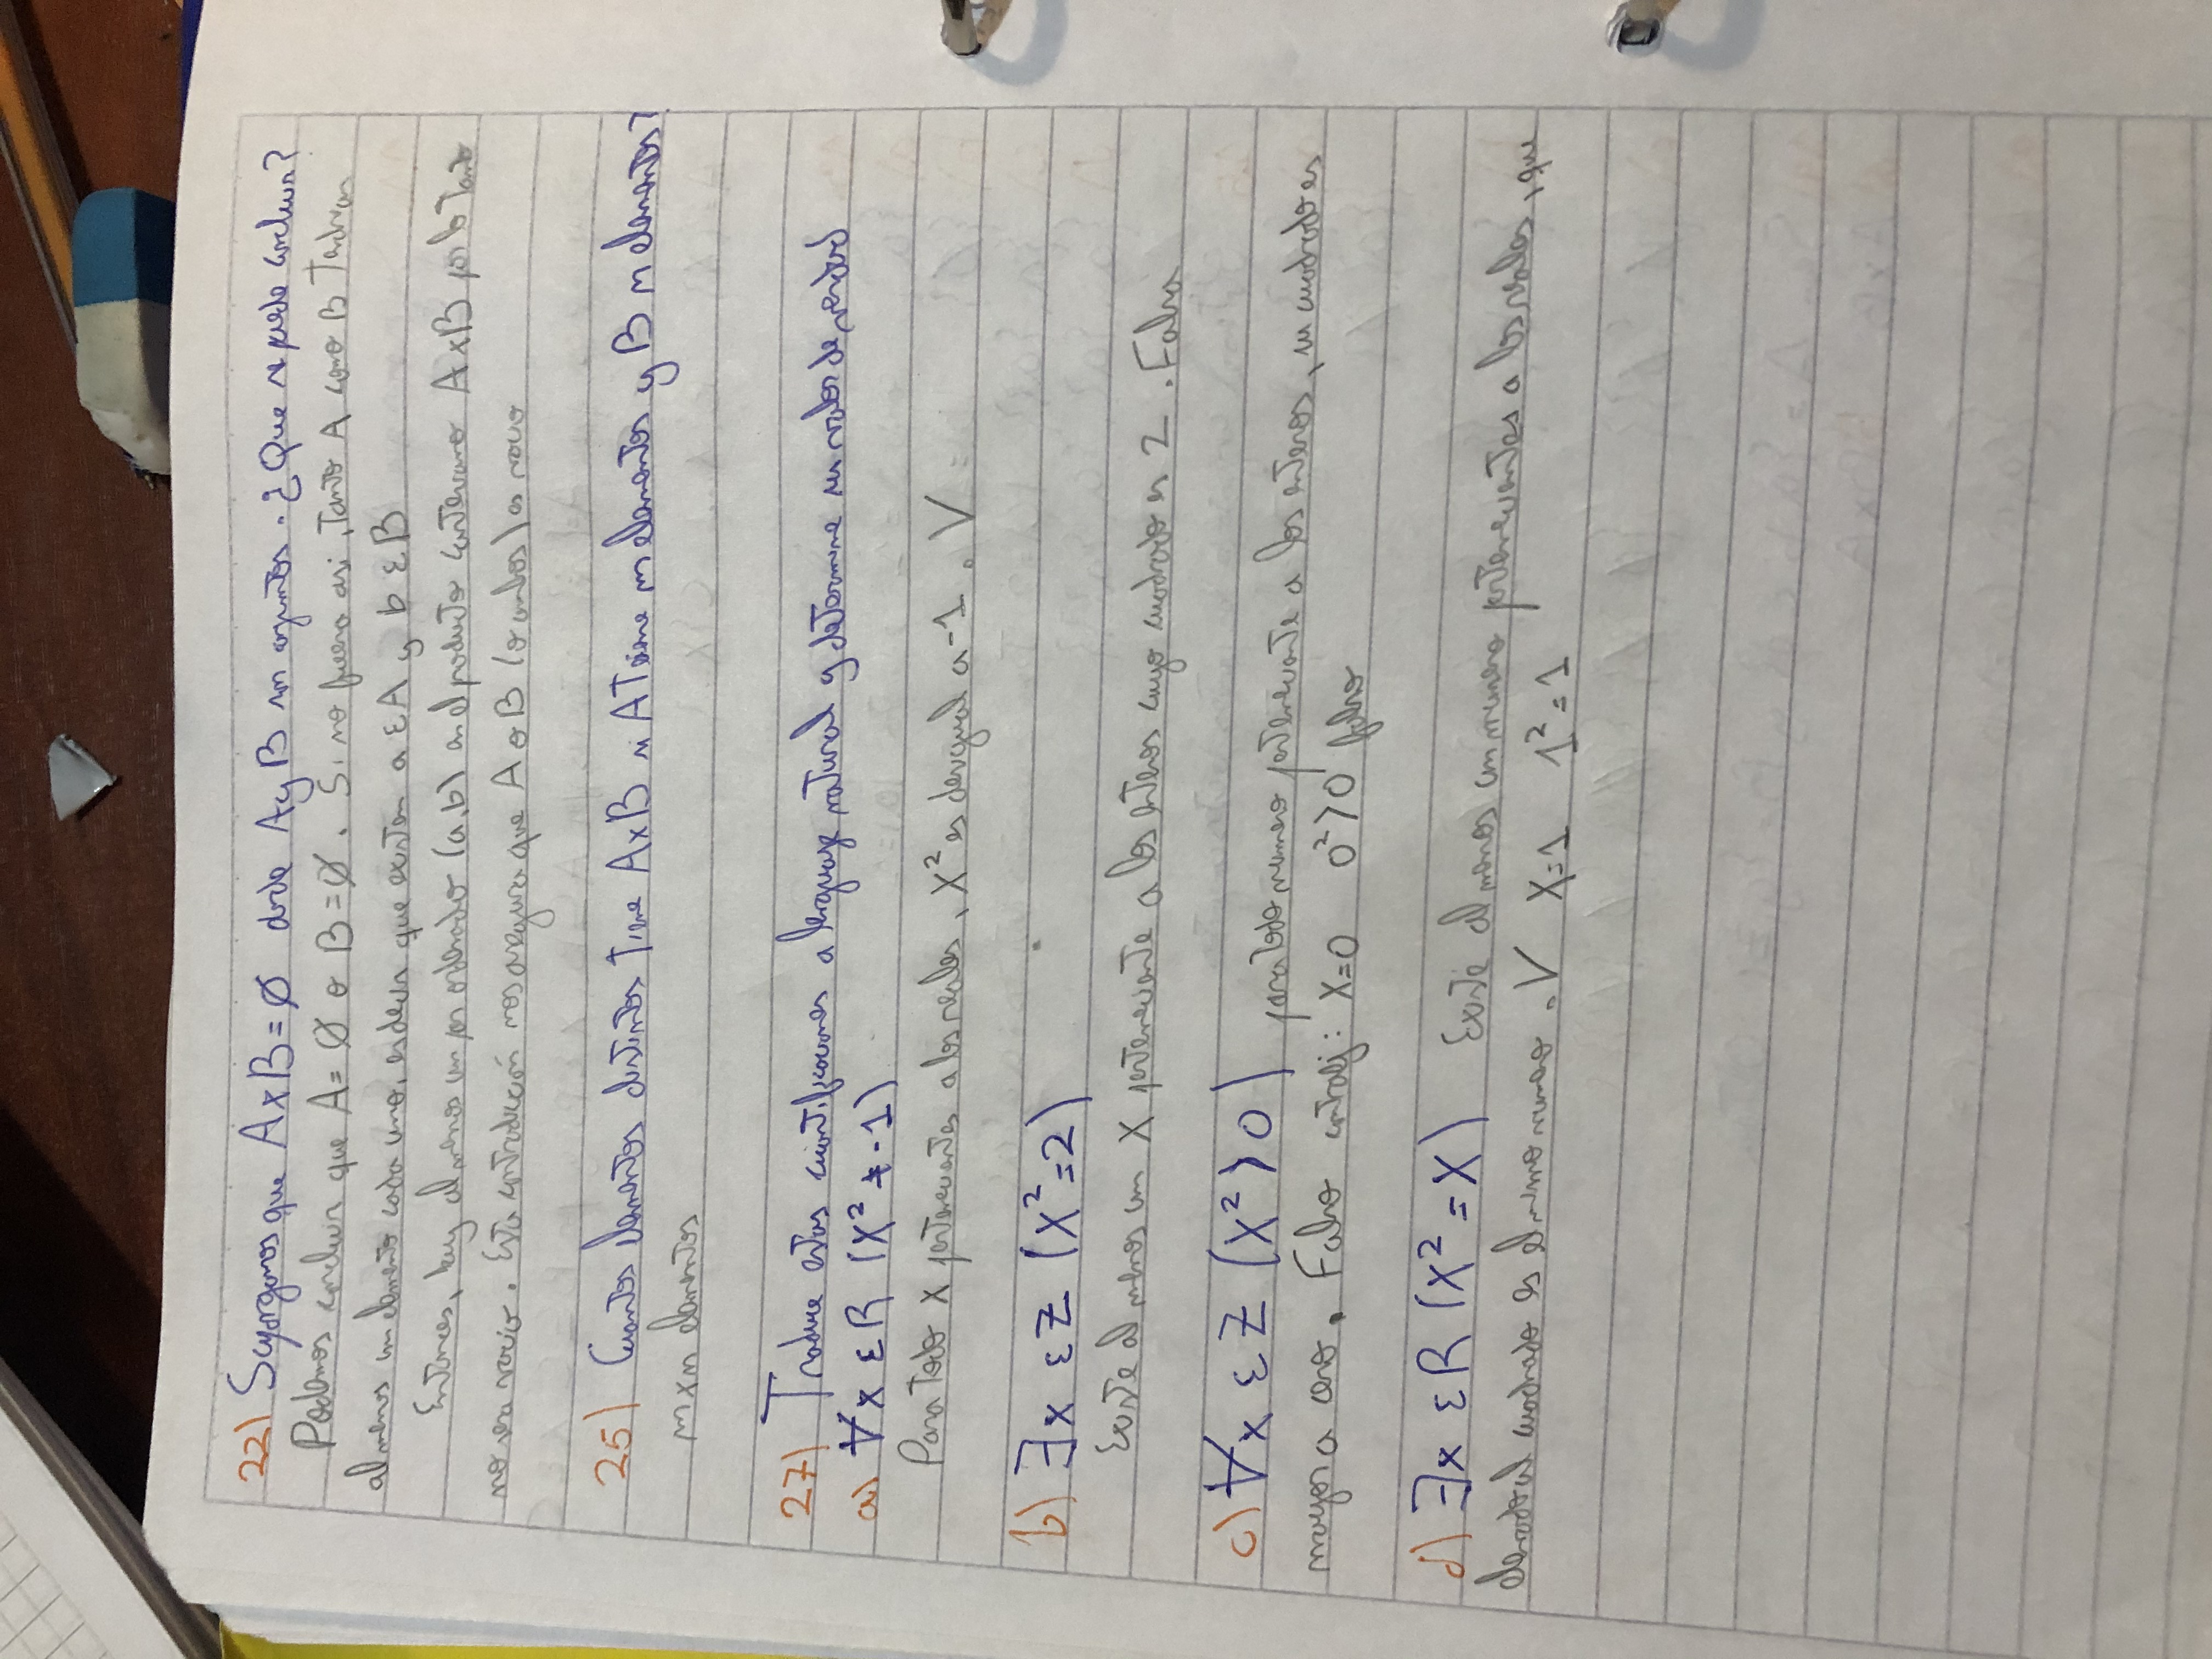 22) Supongamos que A x B = ∅ donde A y B son conjuntos. ¿Que se puede concluir?
Podemos concluir que A = ∅ o B = ∅. Si no fuera asi, tanto A como B tendrian
al menos un elemento cada uno, es decir que existen a ε A y b ε B
Entonces, hay al menos un par ordenado (a,b) en el producto cartesiano A x B por lo tanto
no sera vacio. Esta contradicción nos asegura que A o B (o ambos) es vacio
25) Cuantos elementos distintos tiene A x B si A tiene m elementos y B n elementos?
m x n elementos
27) Traduce estas cuantificaciones a lenguaje natural y determine su valor de verdad
a) ∀x ε R (X² ≠ -1)
Para todo x pertenecientes a los reales, X² es desigual a -1. V
b) ∃x ε Z (X² = 2)
Existe al menos un X perteneciente a los enteros cuyo cuadrado es 2. Falsa
c) ∀x ε Z (X² > 0) para todo numero perteneciente a los enteros, su cuadrado es
mayor a cero. Falso contraej: X=0 0² > 0 falso
d) ∃x ε R (X² = X) Existe al menos un numero pertenecientes a los reales, que
elevado al cuadrado es el mismo numero. V X=1 1² = 1